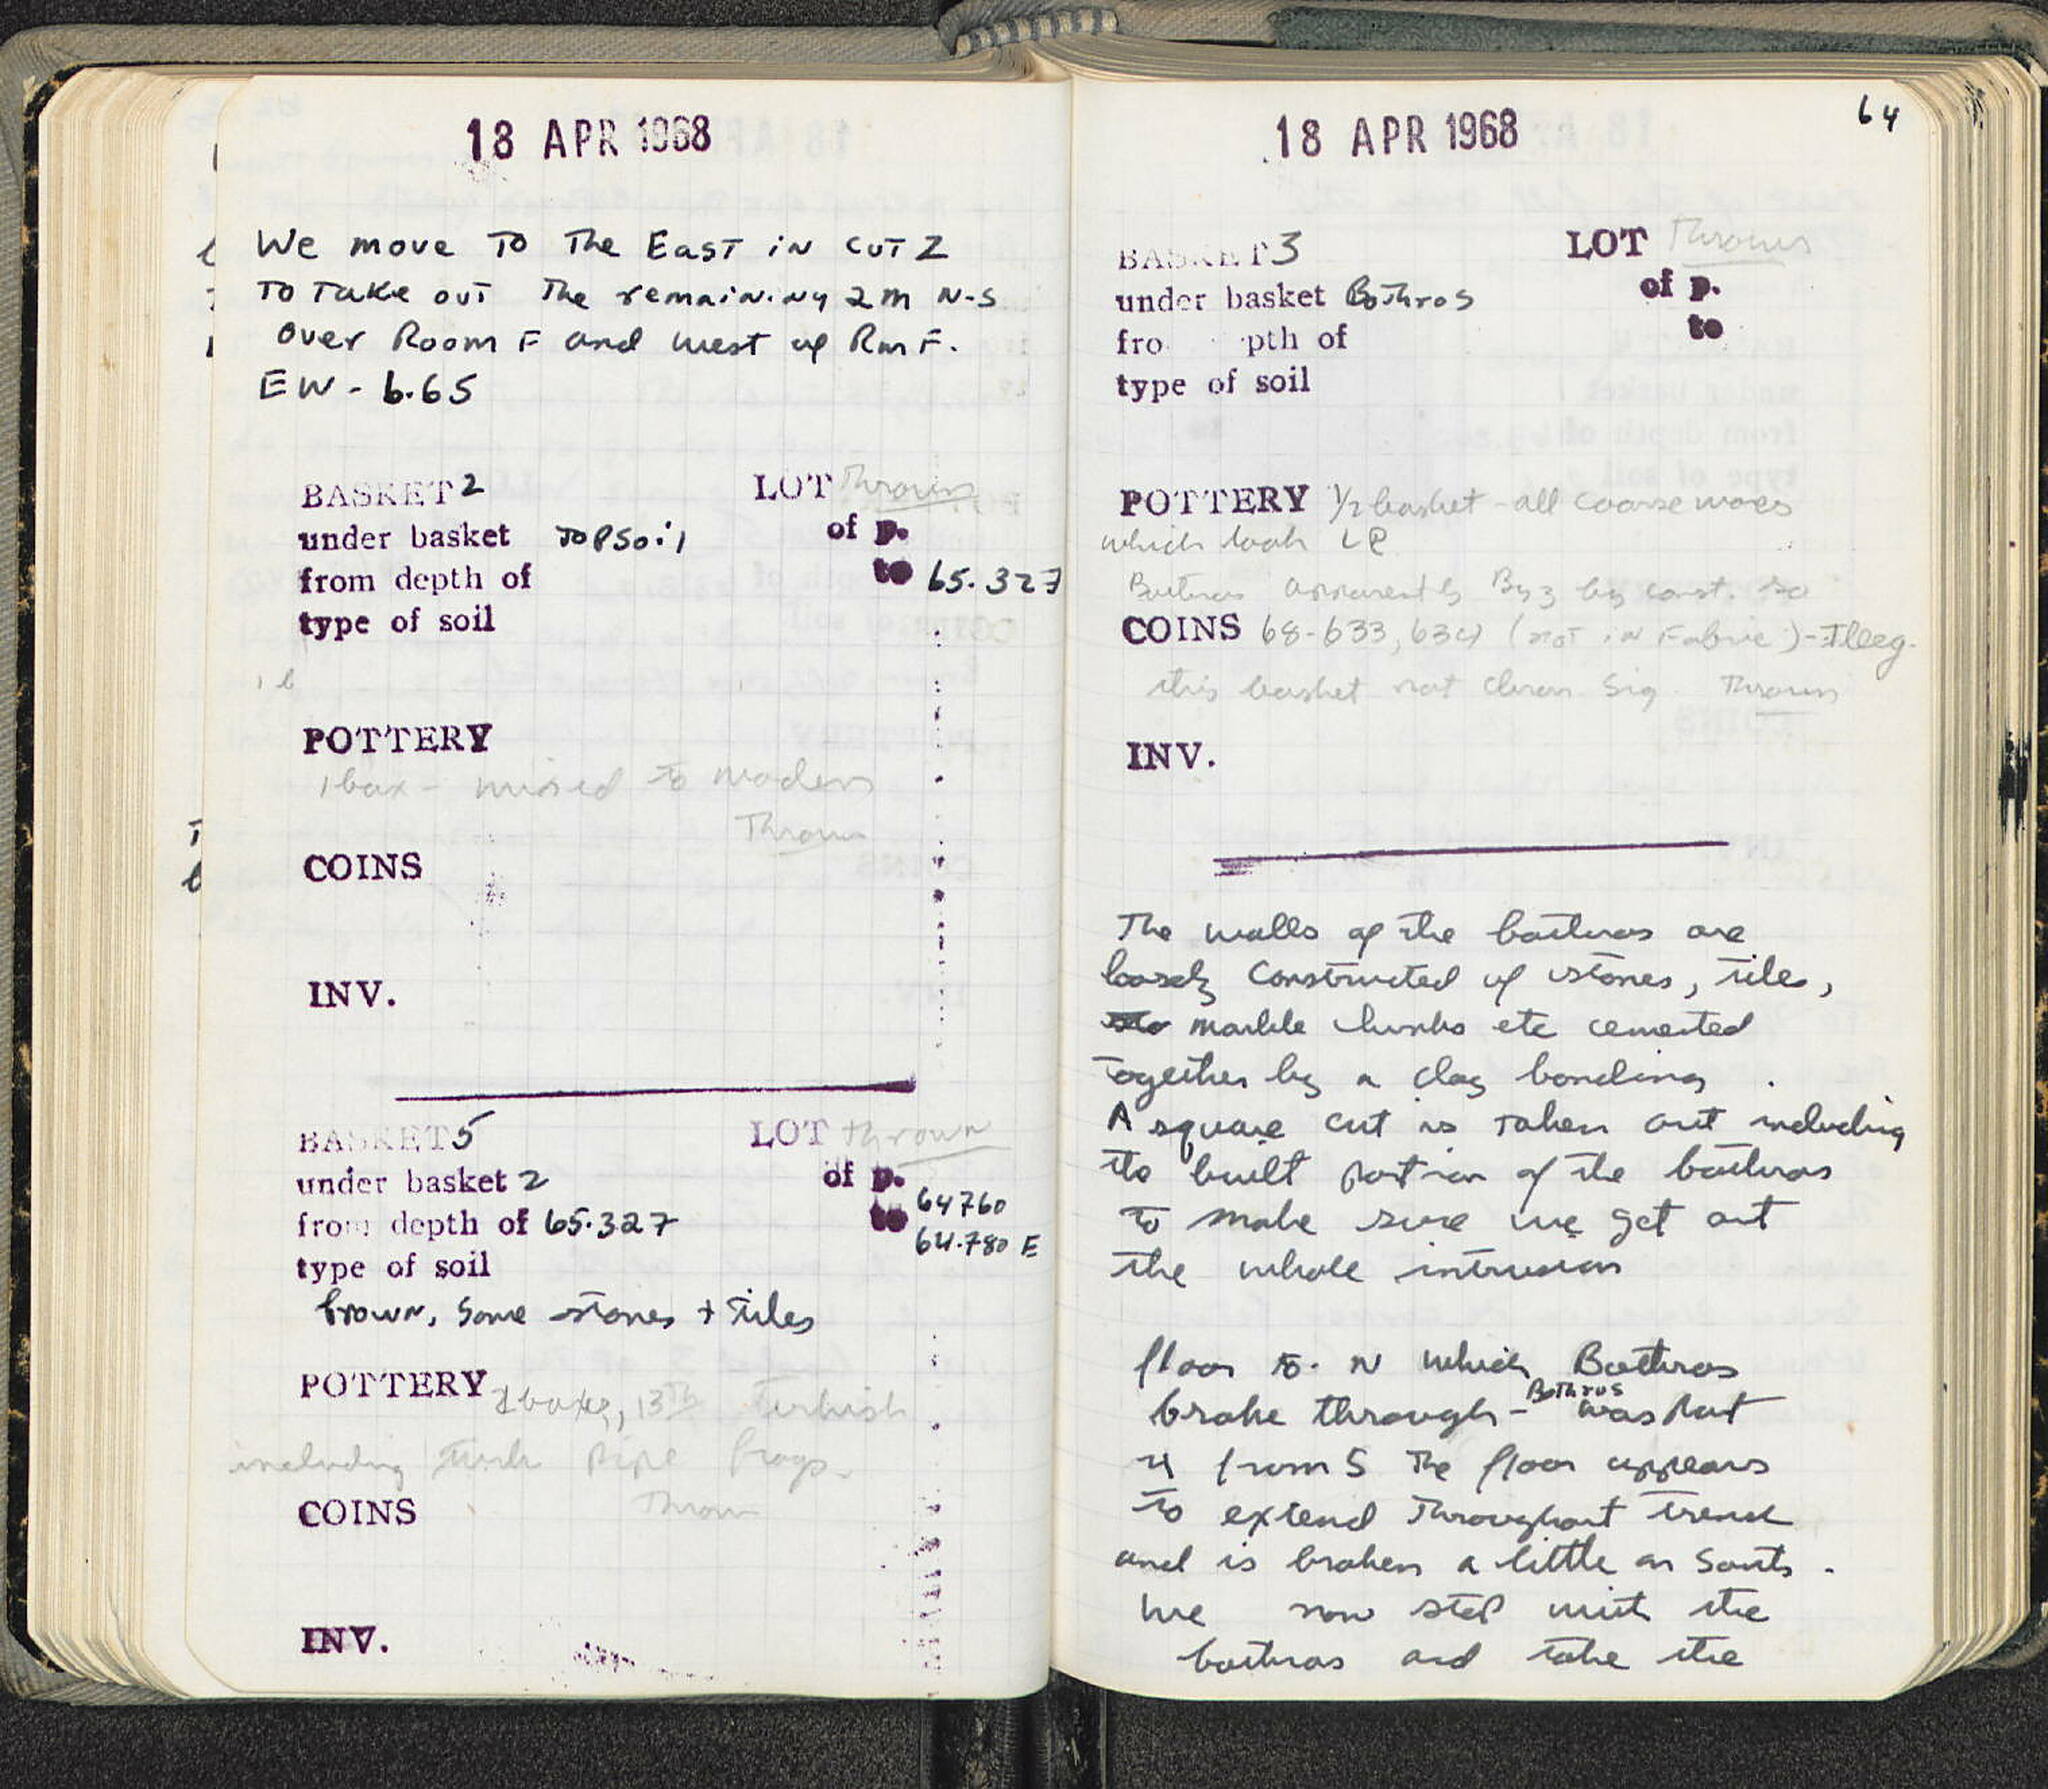 18 APR 1968
We move to the East in cut 2
to take out the remaining 2m N-S
over Room F and west of Rm F.
EW - 6.65
BASKET 2 LOT Thrown
under basket Topsoil of p.
from depth of to 65.327
type of soil
POTTERY
1 box - mixed to modern
Thrown
COINS
INV.
BASKET 5 LOT thrown
under basket 2 of p.
from depth of 65.327 to 64760
64.780 E
type of soil
brown, some stones + tiles
POTTERY 2 boxes, 13th Turkish
including Turk pipe frags.
Thrown
COINS
INV.
64
18 APR 1968
BASKET 3 LOT Thrown
under basket Bothros of p.
fro pth of to
type of soil
POTTERY 1/2 basket - all coarse wares
which look LR
Bothros apparently Byz by const. so
COINS 68-633, 634 (not in Fabric) - Illeg.
this basket not chron. sig. Thrown
INV.
The walls of the bothros are
loosely constructed of stones, tiles,
marble chunks etc cemented
together by a clay bonding.
A square cut is taken out including
the built portion of the bothros
to make sure we get out
the whole intrusion
floor to N which Bothros
broke through - Bothros was put
in from S The floor appears
to extend throughout trench
and is broken a little on South.
We now stop with the
bothros and take the